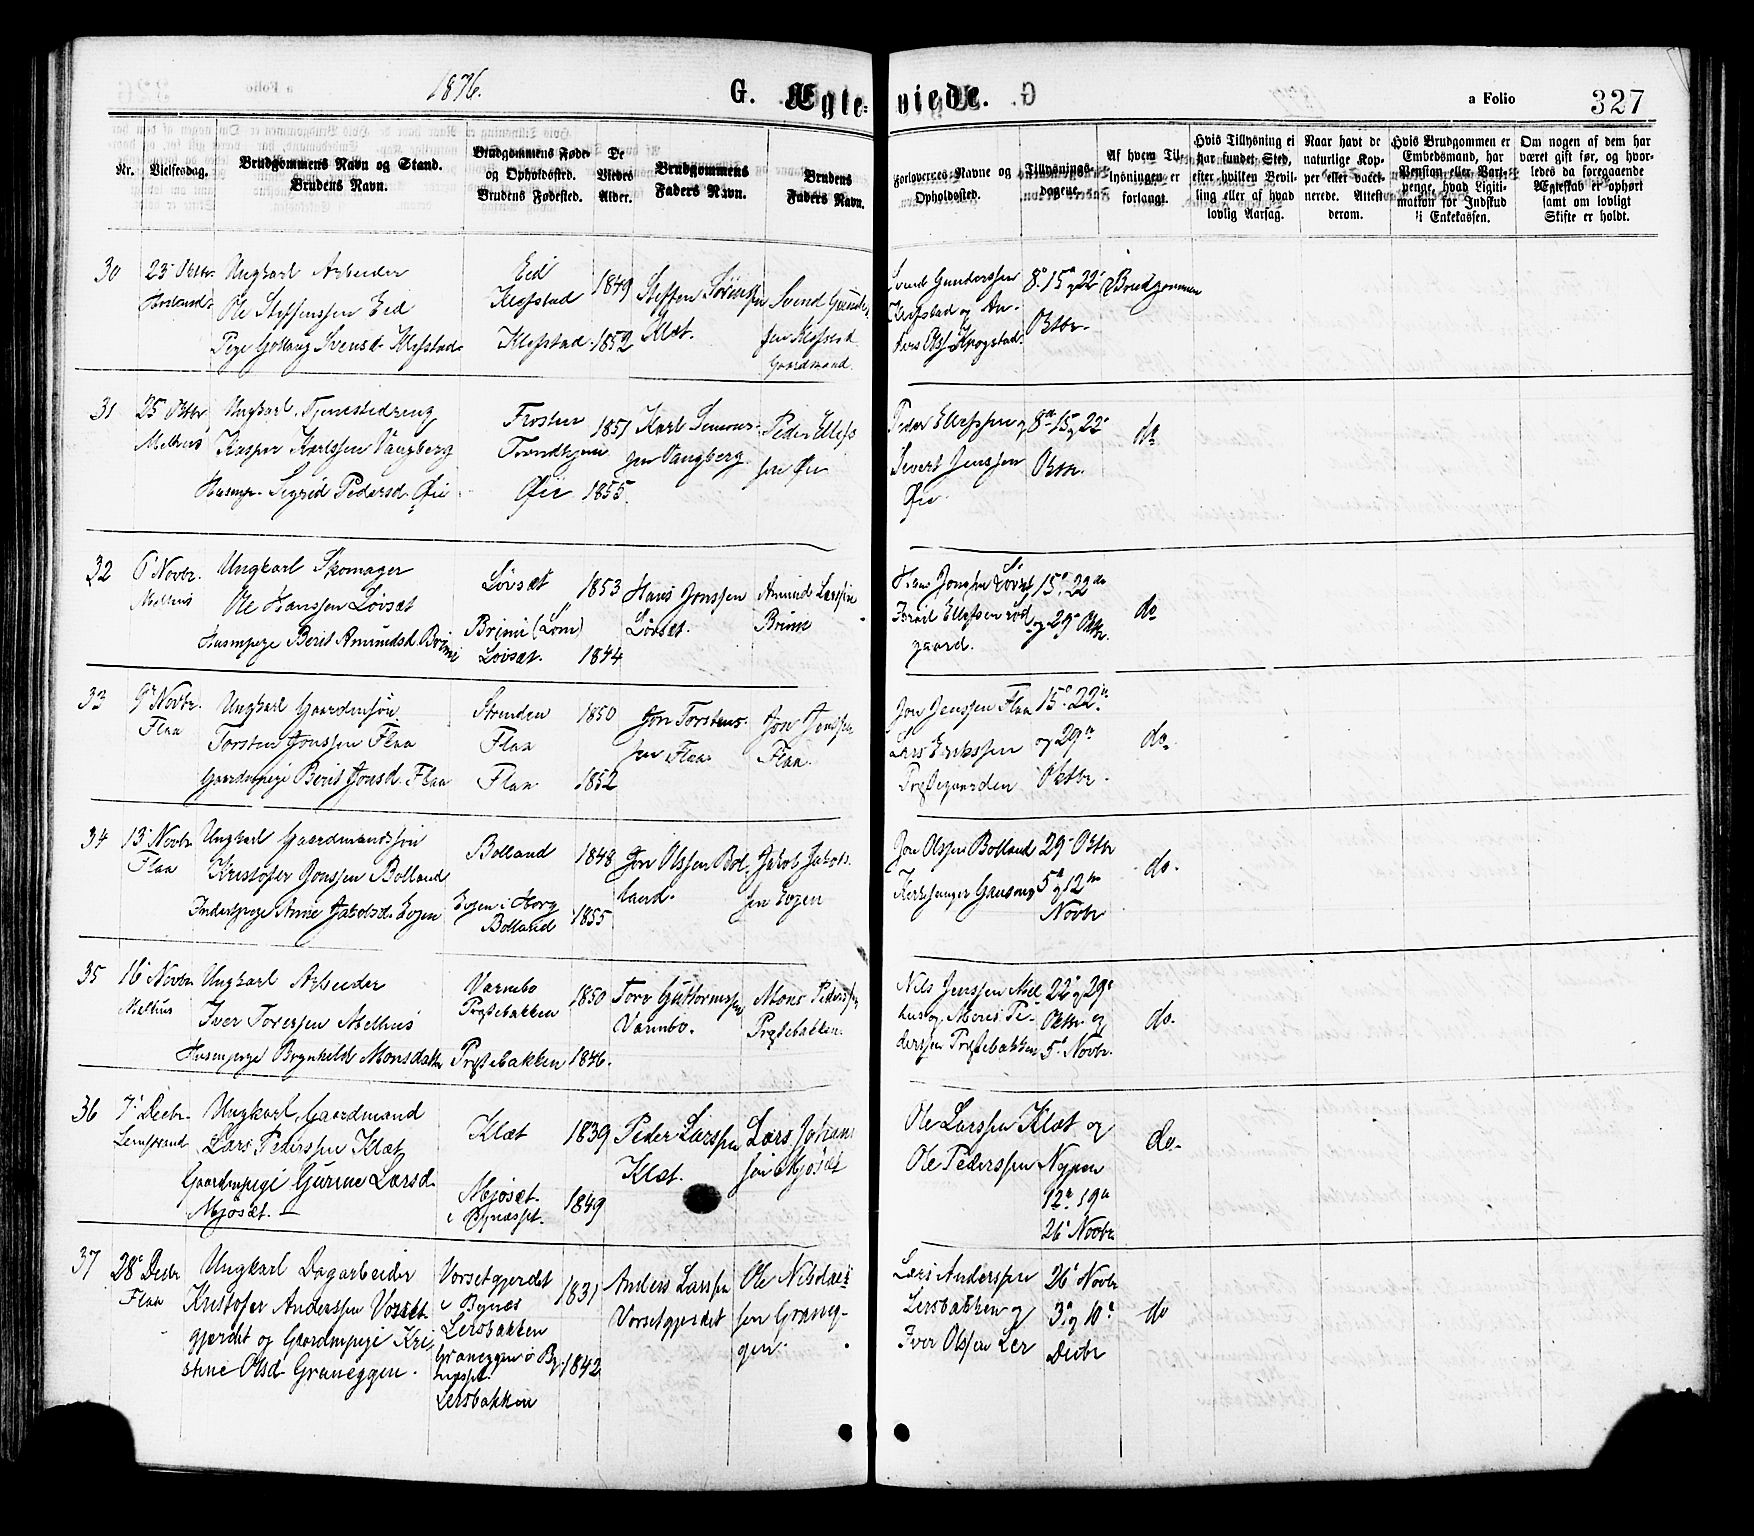 1876.
G. Ægte-
viede.
a Folio
327
Nr.
Vielsesdag.
Brudgommens Navn og Stand.
Brudens Navn.
Brudgommens Føde-
og Opholdssted.
Brudens Fødested.
De
Viedes
Alder.
Brudgommens
Faders Navn.
Brudens
Faders Navn.
Forlovernes Navne og
Opholdssted.
Tillysnings-
dagene.
Af hvem Til-
lysningen er
forlangt.
Hvis Tillysning ei
har fundet Sted,
efter hvilken Bevil-
ling eller af hvad
lovlig Aarsag.
Naar havt de
naturlige Kop-
per eller vacci-
nerede. Attest
derom.
Hvis Brudgommen er
Embedsmand, har
Pension eller Vart-
penge, hvad Legiti-
mation for Indskud
i Enkekassen.
Om nogen af dem har
været gift før, og hvor-
ledes da foregaaende
Ægteskab er ophørt
samt om lovligt
Skifte er holdt.
30
23 Oktbr.
Ungkarl Arbeider
Ole Steffenssen Eid
Pige Gollaug Svensd. Klefstad
Eid
Klefstad
Klefstad
1849
1852
Steffen
Klæt.
Svend Gunder-
sen Klefstad
Gaardmand.
Svend Gunderssen
Klefstad og An-
ders Krogstad.
8de 15de og 22de
Oktbr.
Brudgommen
31
25 Oktbr
Melhus
Ungkarl, Tjenestedreng
Kasper Karlssen Vangberg
Sigrid Pedersd. Øie
Frosten
Trondhjem
Øie
1851
1855.
Karl Simons-
sen Vangberg
Peder Ellefs
sen Øie
Peder Ellefssen og
Sivert Jenssen
Øie.
8de 15 og 22de
Oktr.
do
32
6 Novbr.
Melhus
Ungkarl Skomager
Ole Hanssen Løvset
Huusmpige Berit Amundsd. Brimi
Løvset
Brimi (Lom)
Løvset.
1853
1844
Hans Jonssen
Løvset.
Amund Larssen
Brimi
Hans Jonssen Løvset
Ellefsen Lød
gaard.
15de 22de
og 29de Oktr.
do
33
9de Novbr.
Flaa
Ungkarl Gaardmsøn
Torsten Jonssen Flaa
Gaardmpige Berit Jonsd. Flaa
Strinden
Flaa
Flaa
1850
1852
Jon Torstens-
sen Flaa
Jon Jenssen
Flaa.
Jon Jenssen Flaa
Lars Erikssen
Prestegaarden
15de 22de
og 29de
Oktbr.
do.
34
13de Novbr.
Flaa
Ungkarl Gaardmandssøn
Kristofer Jonssen Bolland
Inderstpige Anne Jakobsd. Evjen
Bolland
Evjen i Horg
Bolland
1848
1855.
Jon Olssen Bol-
land.
Jakob Jakob-
sen Evjen
Jon Olssen Bolland
Kirkesanger
29de Oktbr
5te og 12te
Novbr
do.
35
16de Novbr
Melhus
Ungkarl Arbeider
Iver Toressen Melhus
Husmpige Brynhild Monsdatter
Varmbo
Prestebakken
Prestebakken
1850
1846.
Tore Guttormssen
Varmbo.
Mons Pederssen
Prestebakken.
Nils Jenssen Mel
hus og Mons Pe-
derssen Prestebakken
22de og 29de
Oktbr. og
5te Novbr.
do.
36
7de Decbr.
Leinstrand
Ungkarl, Gaardmand
Lars Pederssen Klæt
Gaardmpige Gurine Larsd.
Mjøset.
Klæt
Mjøset
i Bynesset.
1839
1849
Peder Larssen
Klæt.
Lars Johans
sen Mjøset
Ole Larssen Klæt og
Ole Pederssen Nypan
12te 19de
26de Novbr.
do.
37
28de Decbr
Flaa
Ungkarl Dagarbeider
Kristofer Anderssen Vorset
gjerdet og Gaardmpige Kri-
stine Olsd. Graneggen.
Vorsetgjerdet
i Bynes
Lersbakken
Graneggen i By-
nesset.
Lersbakken
1831
1842
Anders Larssen
Vorsetgjerdet
Ole Nikolai
sen Graneg-
gen.
Lars Anderssen
Lersbakken og
Iver Olssen Ler
26de Novbr
3de og 10de
Decbr
do